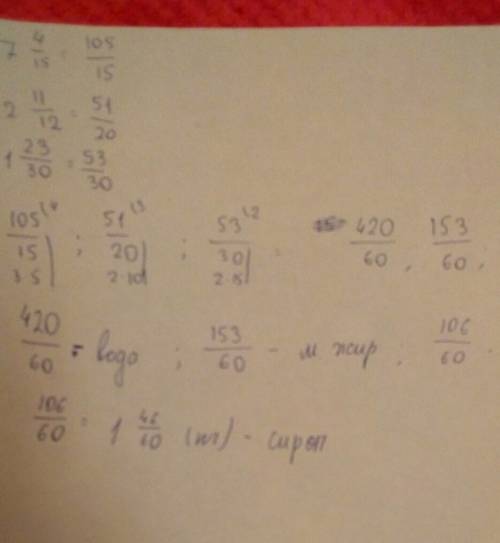 7 4/15 = 105/15
2 11/12 = 51/20
1 23/30 = 53/30
105/15 ; 51/20 ; 53/30 = 420/60 , 153/60 ;
3·5 2·10
420/60 = водо ; 153/60 - м жир ; 106/60
106/60 = 1 46/60 (кг) - сироп